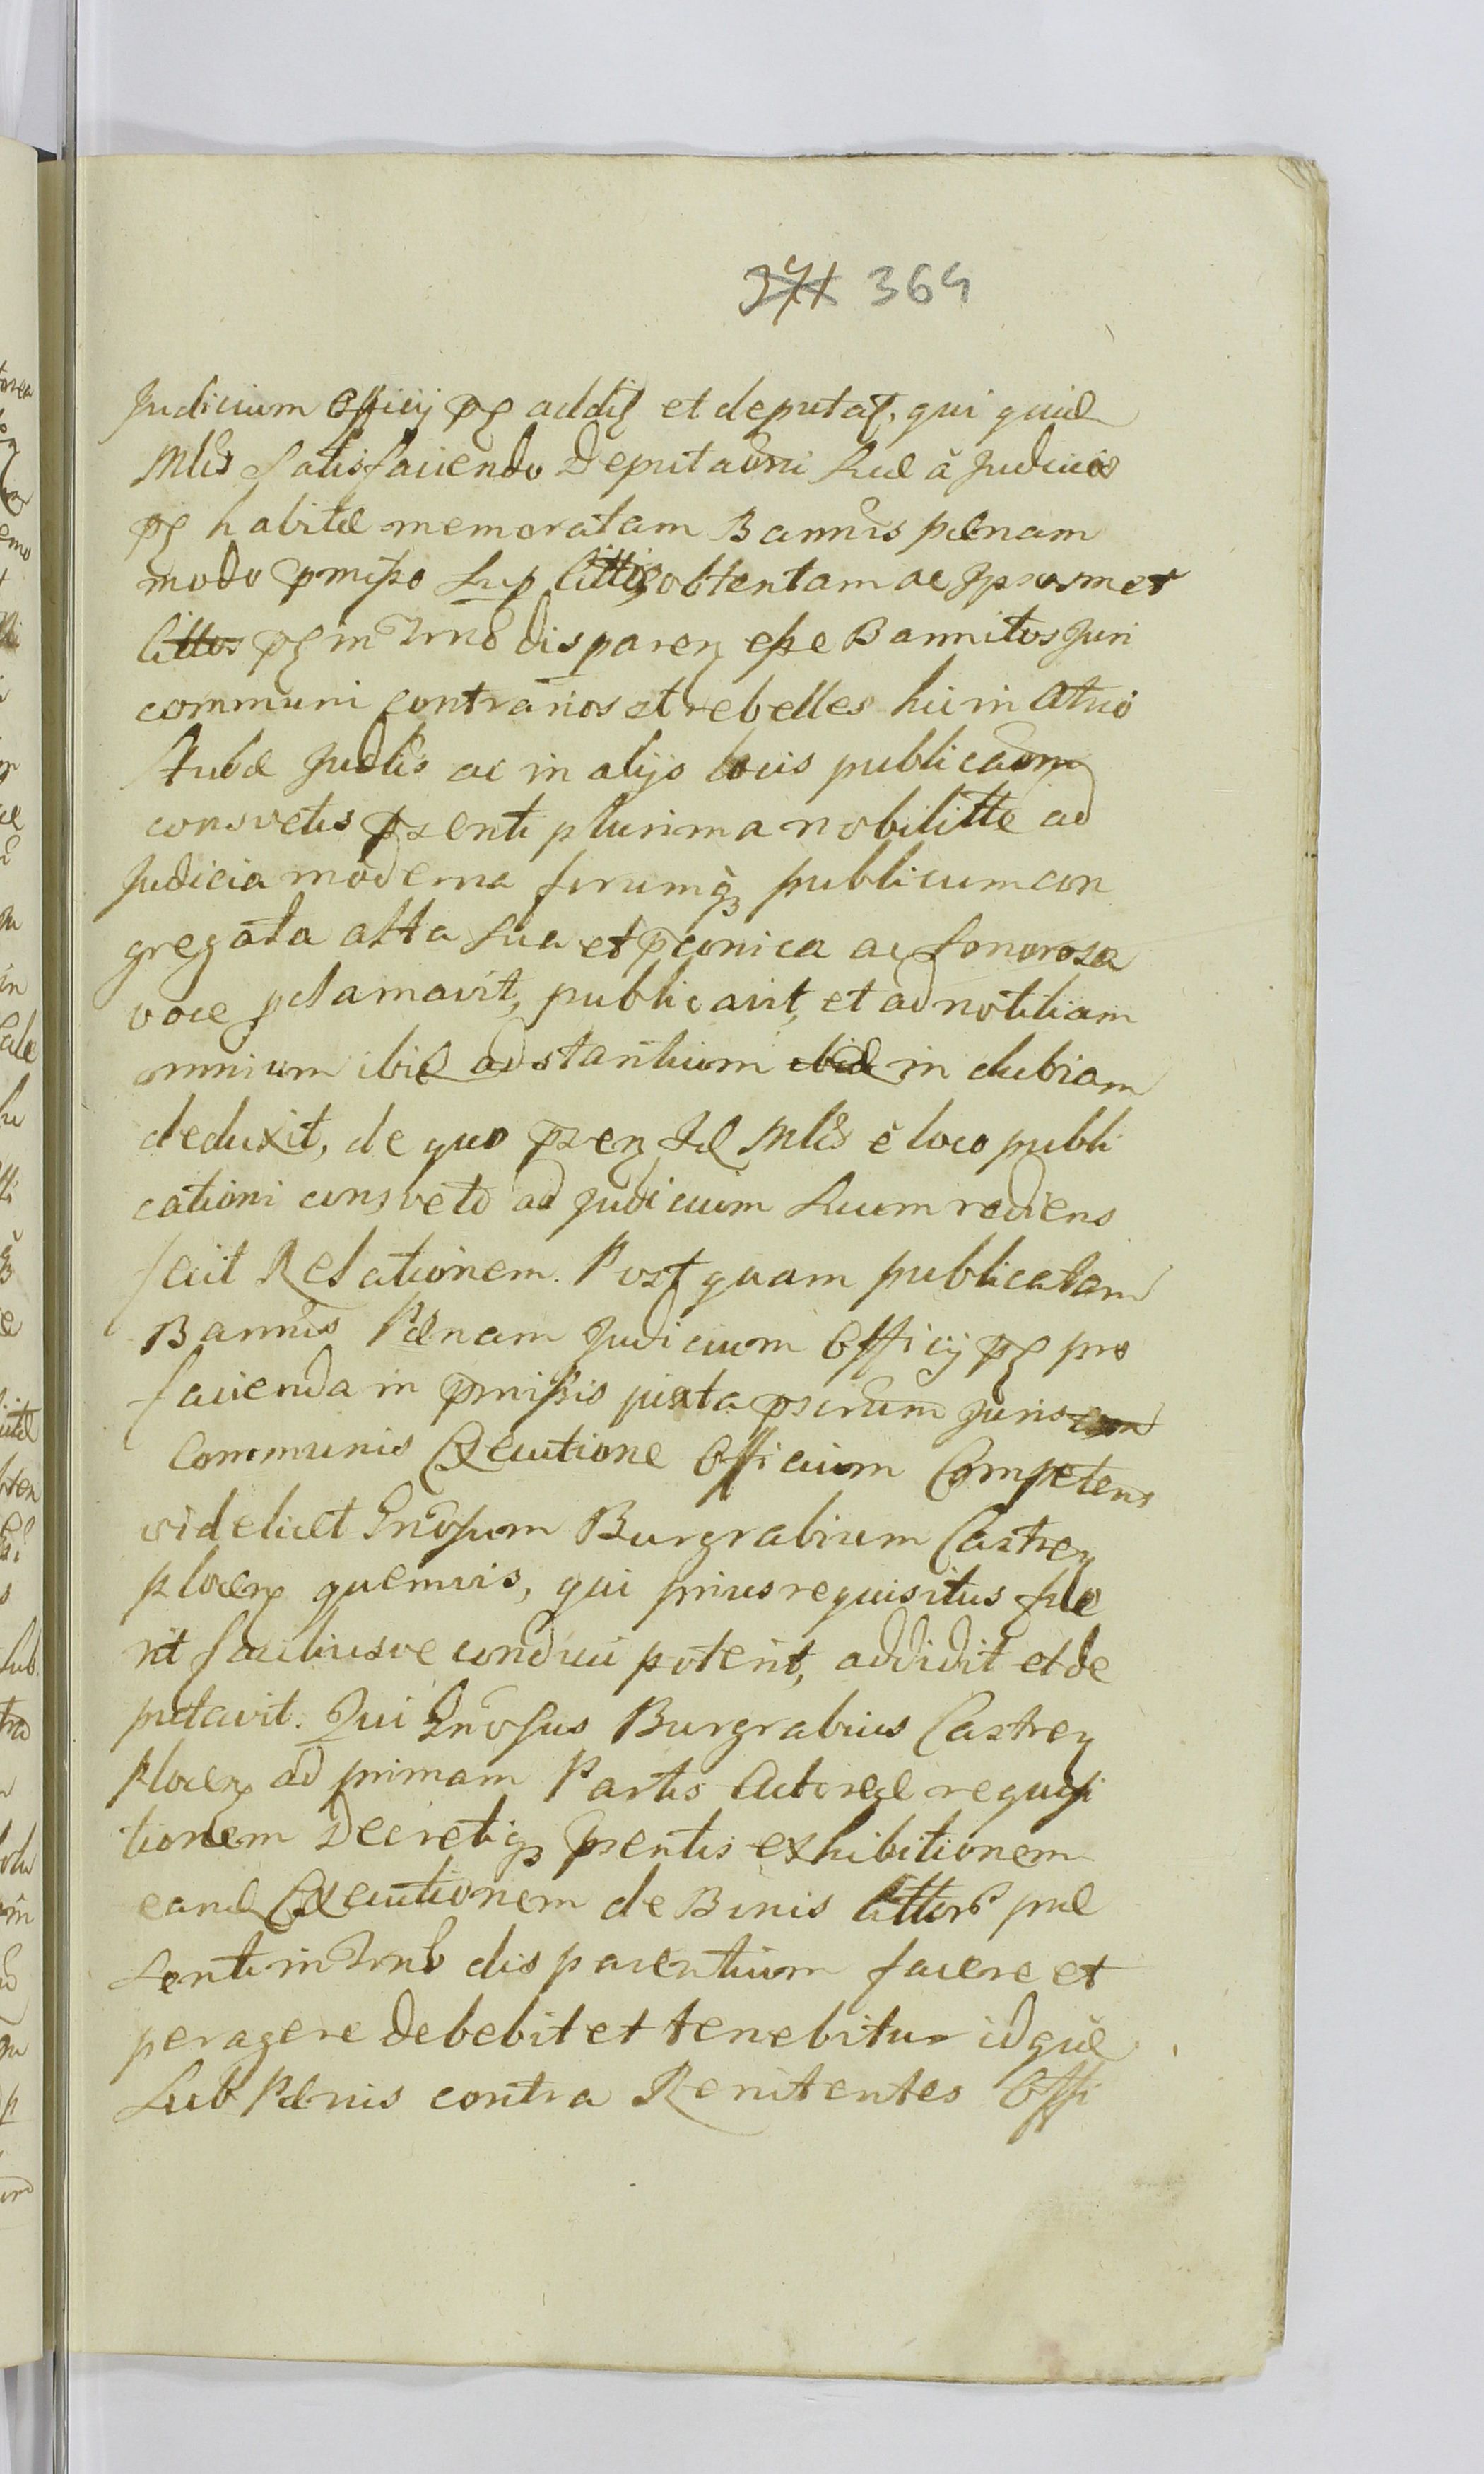 371 364
Judicium Officij pns addit et deputat, qui quid
Mlis satisfaciendo Deputaoni suæ à Judicio
pns habitæ memoratam Bannis pænam
modo pmisso sup littis obtentam ac ipsosmet
littos pns in Trno disparen esse Bannitos Juri
communi contrarios et rebelles hic in Atrio
Stubæ Judlis ac in alijs locis publicaoni
consvetis psenti plurima nobilitte ad
Judicia moderna forumq publicum con
gregata alta sua et pconica ac sonorosa
voce pclamavit, publicavit, et ad notitiam
omnium ibid adstantium ibid in dubiam
deduxit, de quo psen Id Mlis è loco publi
cationi consveto ad Judicium suum rediens
fecit Relationem. Postquam publicatam
Bannis Pænam Judicium Officij pns pro
facienda in pmissis juxta pscrum Juris com
Communis Executione Officium Competens
videlicet Gnosum Burgrabium Castren
plocen quemvis, qui prius requisitus fue
rit faciliusve conduci poterit, addidit et de
putavit. Qui Gnosus Burgrabius Castren
Plocen ad primam Partis Actoreæ requisi
tionem Decretiq psentis exhibitionem
eand Executionem de Binis littor præ
senti in Trno disparentium facere et
peragere debebit et tenebitur idque
sub Pænis contra Renitentes Offi